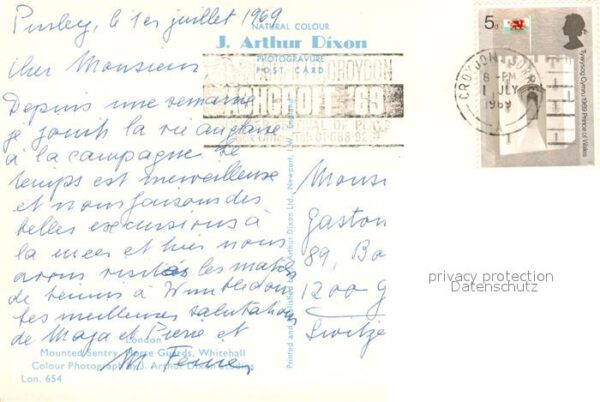 Purley, le 1er juillet 1969
NATURAL COLOUR
J. Arthur Dixon
PHOTOGRAVURE
POST CARD
Cher Monsieur
Depuis une semaine
je jouis la vie anglaise
à la campagne. Le
temps est merveilleux
et nous faisons des
belles excursions à
la mer et hier nous
avons visités les matchs
de tennis à Wimbledon
Les meilleures salutations
de Maga et Pierre et
M.
London
Mounted Sentry, Horse Guards, Whitehall
Colour Photograph by J. Arthur Dixon Studios
Lon. 654
Printed and Published by J. Arthur Dixon Ltd., Newport, I.W., England
CROYDON
ASHCROFT '69
FESTIVAL OF PLAYS
5d
Tywysog Cymru 1969 Prince of Wales
CROYDON SURREY
8-PM
1 JULY
1969
A
Monsi
Gaston
89, Bo
1200 G
Switze
privacy protection
Datenschutz